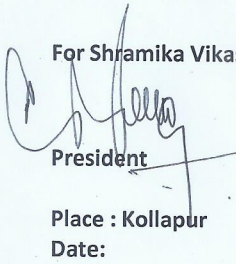 For Shramika Vika
President
Place : Kollapur
Date: